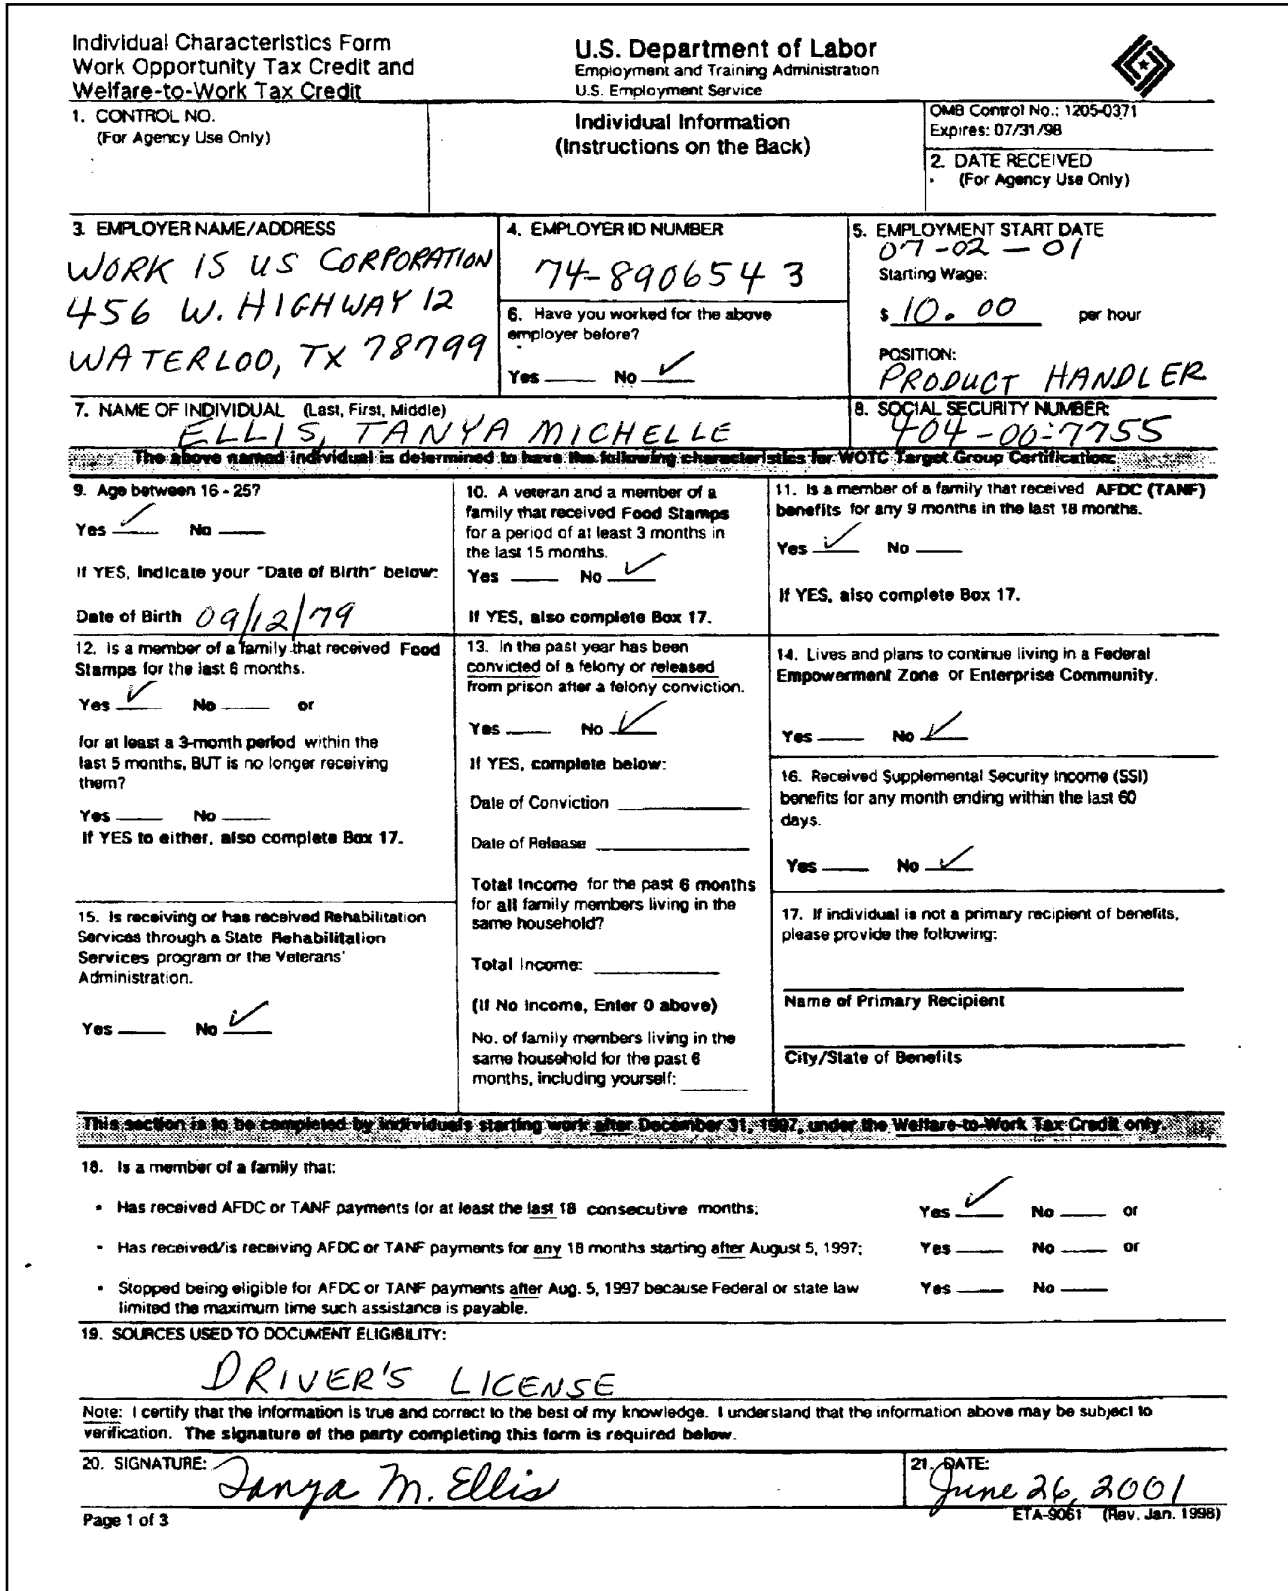 Individual Characteristics Form
Work Opportunity Tax Credit and
Welfare-to-Work Tax Credit
U.S. Department of Labor
Employment and Training Administration
U.S. Employment Service
1. CONTROL NO.
(For Agency Use Only)
Individual Information
(Instructions on the Back)
OMB Control No.: 1205-0371
Expires: 07/31/98
2. DATE RECEIVED
(For Agency Use Only)
3. EMPLOYER NAME/ADDRESS
WORK IS US CORPORATION
456 W. HIGHWAY 12
WATERLOO, TX 78799
4. EMPLOYER ID NUMBER
74-8906543
6. Have you worked for the above
employer before?
Yes ____ No ____
5. EMPLOYMENT START DATE
07-02-01
Starting Wage:
$ 10.00 per hour
POSITION:
PRODUCT HANDLER
7. NAME OF INDIVIDUAL (Last, First, Middle)
ELLIS, TANYA MICHELLE
8. SOCIAL SECURITY NUMBER:
404-00-7755
The above named individual is determined to have the following characteristics for WOTC Target Group Certification:
9. Age between 16 - 25?
Yes ____ No ____
If YES, indicate your "Date of Birth" below:
Date of Birth 09/12/79
10. A veteran and a member of a
family that received Food Stamps
for a period of at least 3 months in
the last 15 months.
Yes ____ No ____
If YES, also complete Box 17.
11. Is a member of a family that received AFDC (TANF)
benefits for any 9 months in the last 18 months.
Yes ____ No ____
If YES, also complete Box 17.
12. Is a member of a family that received Food
Stamps for the last 6 months.
Yes ____ No ____ or
for at least a 3-month period within the
last 5 months, BUT is no longer receiving
them?
Yes ____ No ____
If YES to either, also complete Box 17.
13. In the past year has been
convicted of a felony or released
from prison after a felony conviction.
Yes ____ No ____
If YES, complete below:
Date of Conviction ____
Date of Release ____
Total Income for the past 6 months
for all family members living in the
same household?
Total Income: ____
(If No Income, Enter 0 above)
No. of family members living in the
same household for the past 6
months, including yourself: ____
14. Lives and plans to continue living in a Federal
Empowerment Zone or Enterprise Community.
Yes ____ No ____
16. Received Supplemental Security Income (SSI)
benefits for any month ending within the last 60
days.
Yes ____ No ____
15. Is receiving or has received Rehabilitation
Services through a State Rehabilitation
Services program or the Veterans'
Administration.
Yes ____ No ____
17. If individual is not a primary recipient of benefits,
please provide the following:
Name of Primary Recipient
City/State of Benefits
This section is to be completed by individuals starting work after December 31, 1997, under the Welfare-to-Work Tax Credit only.
18. Is a member of a family that:
• Has received AFDC or TANF payments for at least the last 18 consecutive months; Yes ____ No ____ or
• Has received/is receiving AFDC or TANF payments for any 18 months starting after August 5, 1997; Yes ____ No ____ or
• Stopped being eligible for AFDC or TANF payments after Aug. 5, 1997 because Federal or state law Yes ____ No ____
limited the maximum time such assistance is payable.
19. SOURCES USED TO DOCUMENT ELIGIBILITY:
DRIVER'S LICENSE
Note: I certify that the information is true and correct to the best of my knowledge. I understand that the information above may be subject to
verification. The signature of the party completing this form is required below.
20. SIGNATURE: Tanya M. Ellis
21. DATE:
June 26, 2001
Page 1 of 3
ETA-9061 (Rev. Jan. 1998)